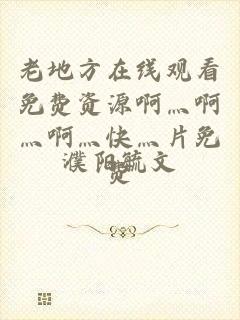 老地方在线观看
免费资源啊灬啊
灬啊灬快灬片免
费
濮阳毓文